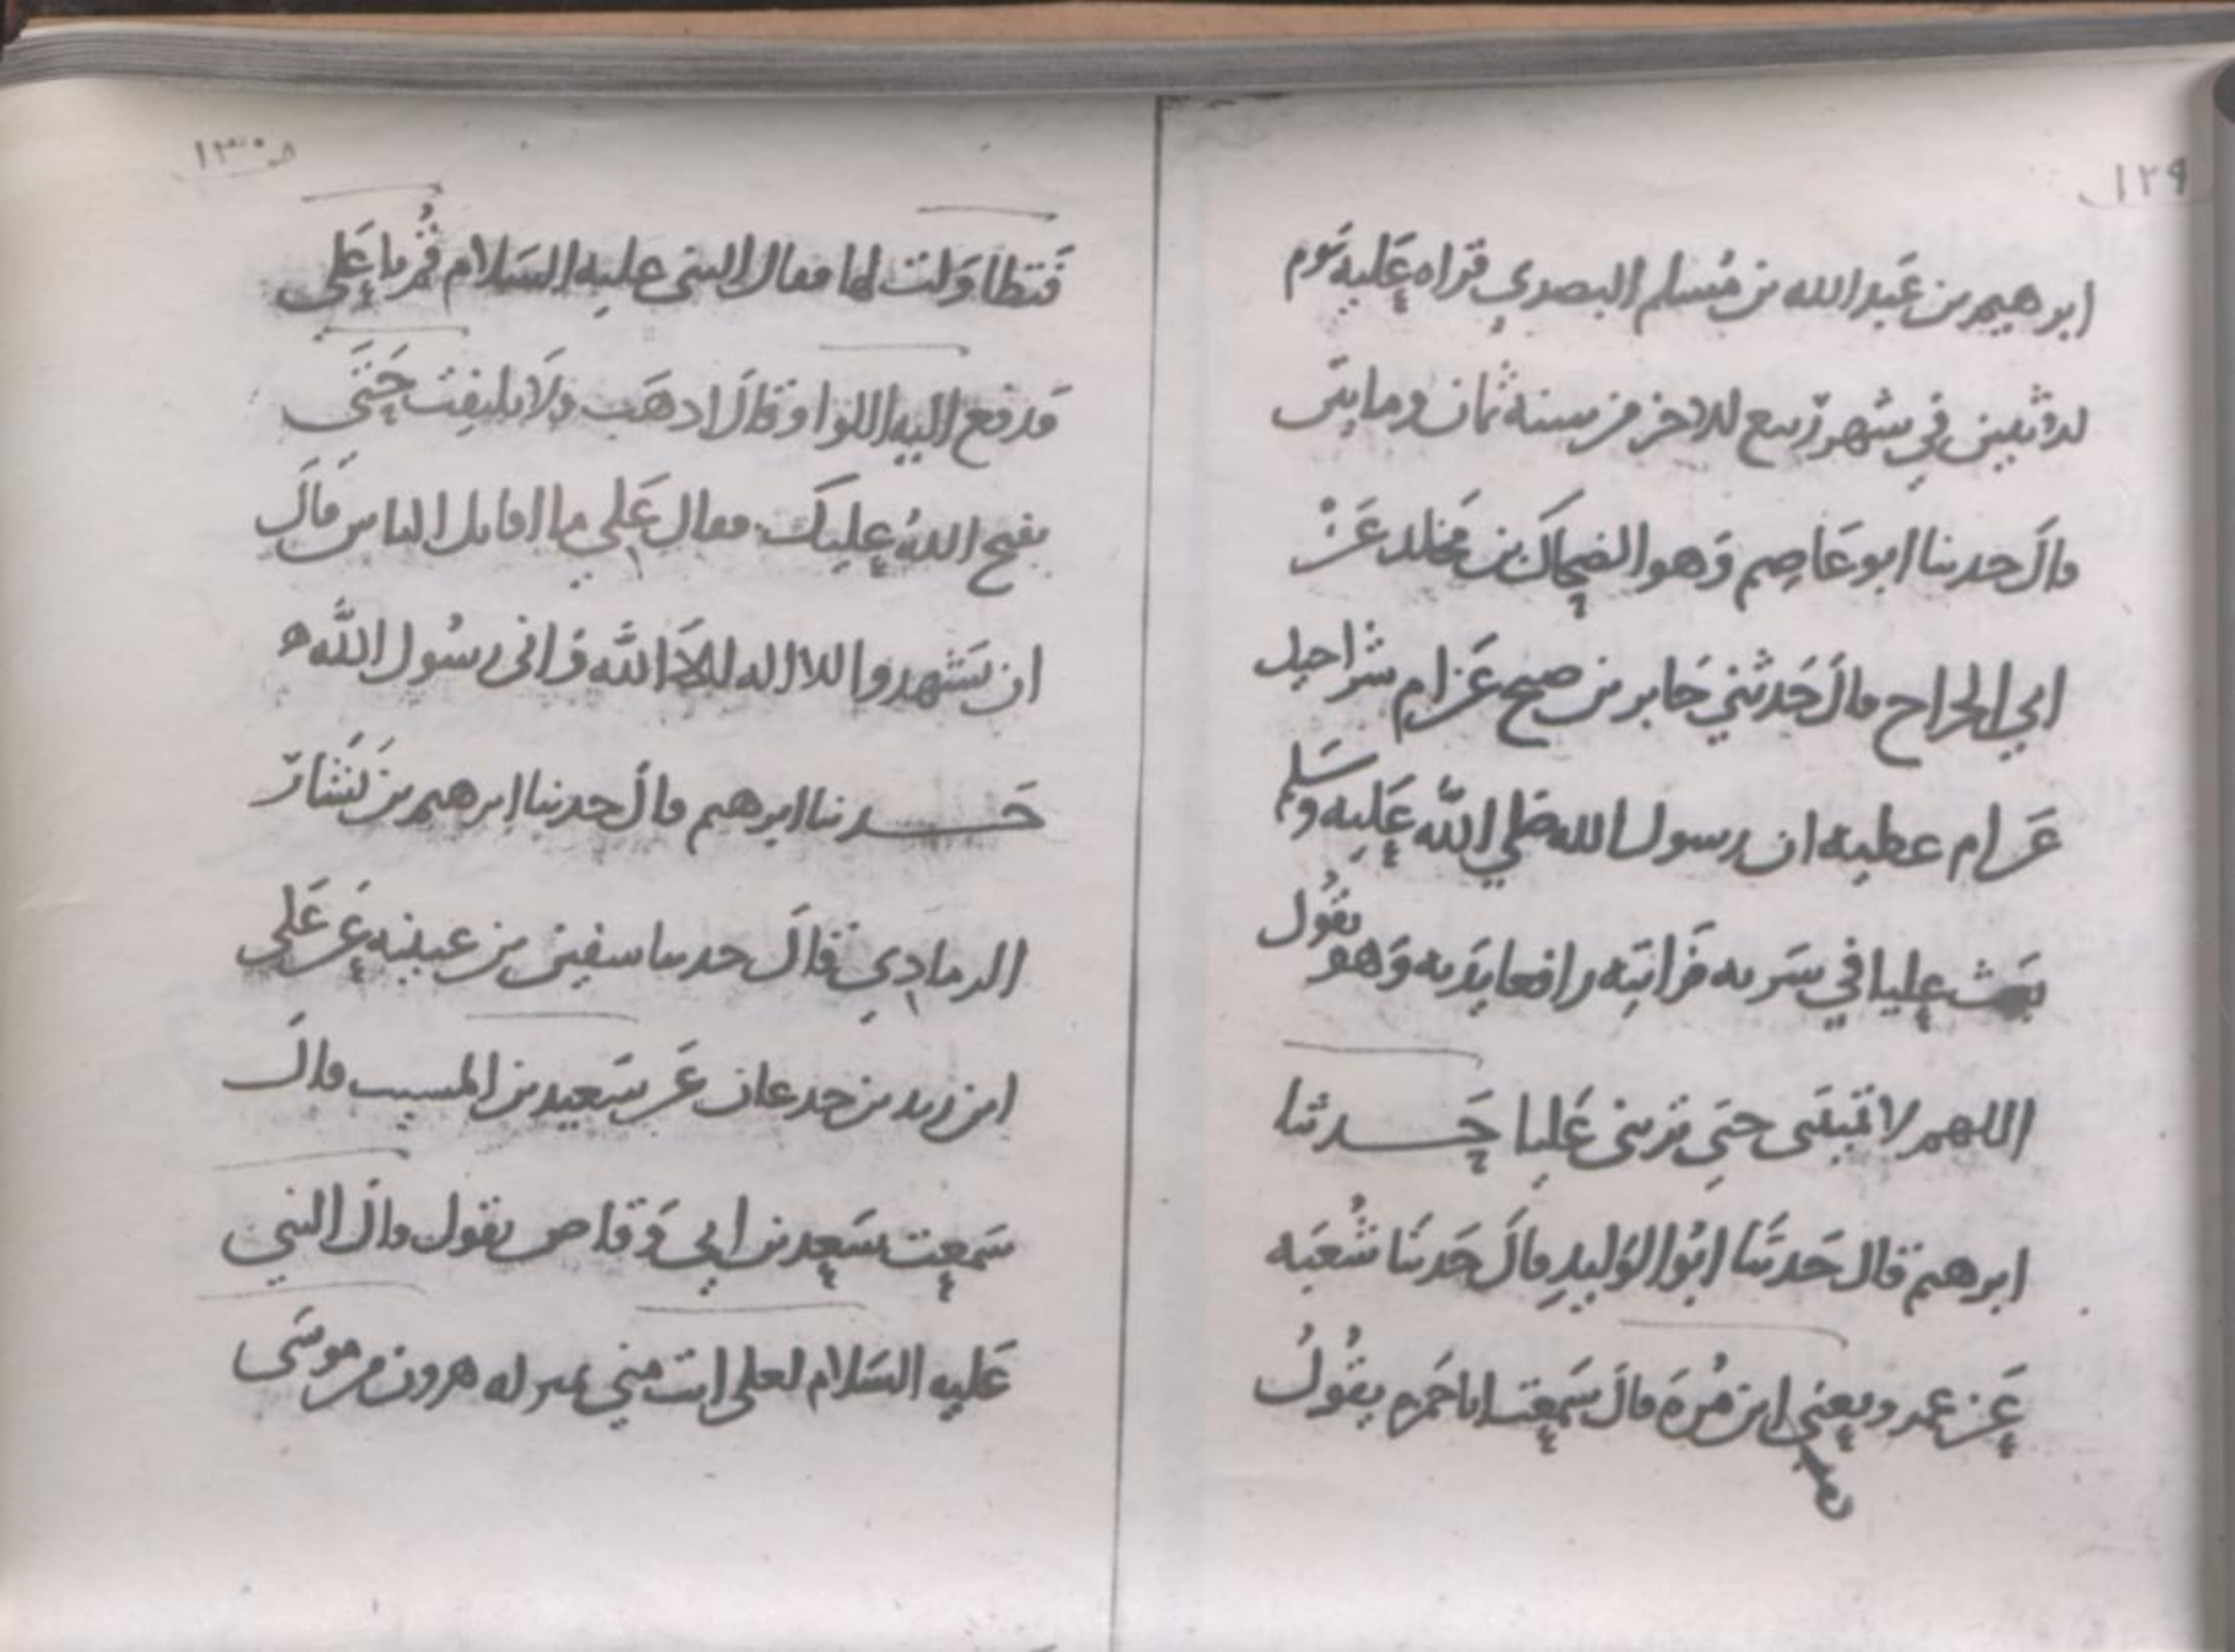 ١٢٩
ابرهيم بن عبد الله بن مسلم البصري قراه عليه يوم
لاثنين في شهر ربيع الاخر من سنة ثمان ومايتى
قال حدثنا ابو عاصم وهو الضحاك بن مخلد عن
ابي الجراح قال حدثني جابر بن صبح عن ام شراحيل
عن ام عطيه ان رسول الله صلى الله عليه وسلم
بعث عليا في سريه فرايته رافعا يديه وهو يقول
اللهم لا تمتنى حتى ترينى عليا حدثنا
ابرهيم قال حدثنا ابو الوليد قال حدثنا شعبه
عن عمرو يعني ابن مره قال سمعت ابا حمزه يقول
١٣٠
فتطاولت لها فقال النبى عليه السلام قم يا على
فدفع اليه اللوا وقال اذهب ولا تلتفت حتى
يفتح الله عليك فقال على ما اقاتل الناس قال
ان يشهدوا الا اله الا الله واني رسول الله ه
حدثنا ابرهيم قال حدثنا ابرهيم بن بشار
الرمادي قال حدثنا سفين بن عيينه عن على
ابن زيد بن جدعان عن سعيد بن المسيب قال
سمعت سعد بن ابي وقاص يقول قال النبي
عليه السلام لعلى انت مني بمنزله هرون من موسى